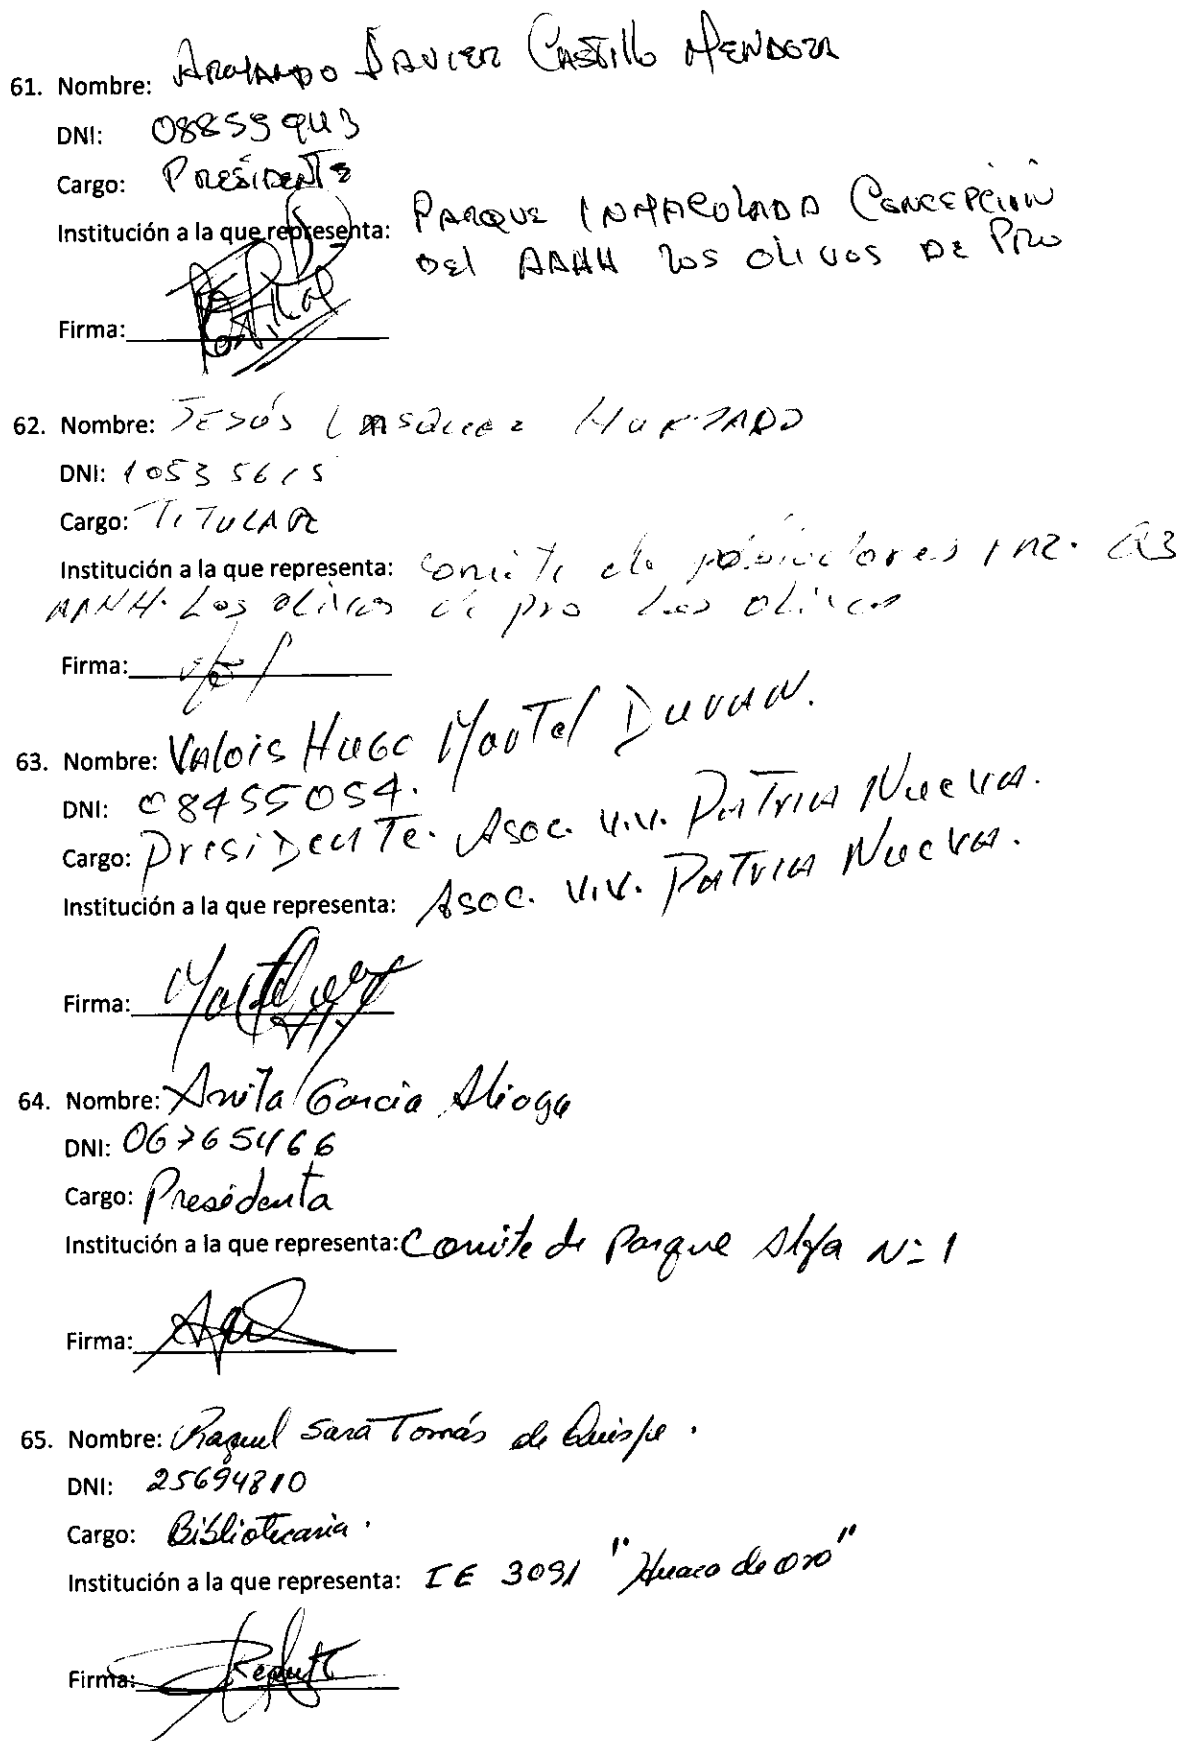 61. Nombre: ARMANDO JAVIER CASTILLO MENDOZA
DNI: 08859943
Cargo: PRESIDENTE
Institución a la que representa: PARQUE INMACULADA CONCEPCION
DEL AAHH LOS OLIVOS DE PRO
Firma:
62. Nombre: JESÚS HURTADO
DNI: 10535615
Cargo: TITULAR
Institución a la que representa: comite de
AAHH. Los olivos de pro Los olivos
Firma:
63. Nombre: VAlois HUGO Martel DuRAN.
DNI: 08455054.
Cargo: PresiDenTe. Asoc. Viv. PaTria Nueva.
Institución a la que representa: Asoc. Viv. PaTria Nueva.
Firma: Martel
64. Nombre: Anita Garcia Aliaga
DNI: 06765466
Cargo: Presidenta
Institución a la que representa: Comite de Parque Alfa N=1
Firma:
65. Nombre: Raquel Sara Tomás de Quispe.
DNI: 25694810
Cargo: Bibliotecaria.
Institución a la que representa: IE 3091 "Huaca de oro"
Firma: